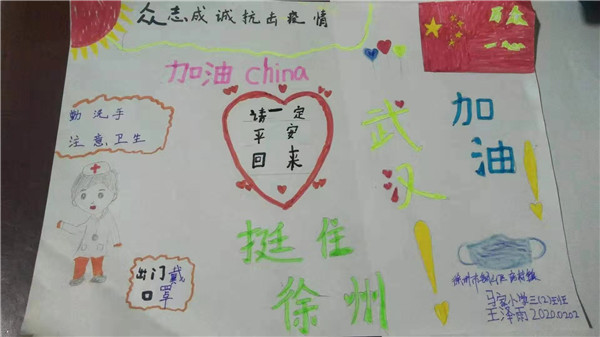 众志成诚抗击疫情
加油 china
勤洗手
注意卫生
请一定
平安
回来
武汉
加油!
挺住
徐州!
出门戴
口罩
徐州市铜山区房村镇
小学三(2)班
王泽雨 20200202